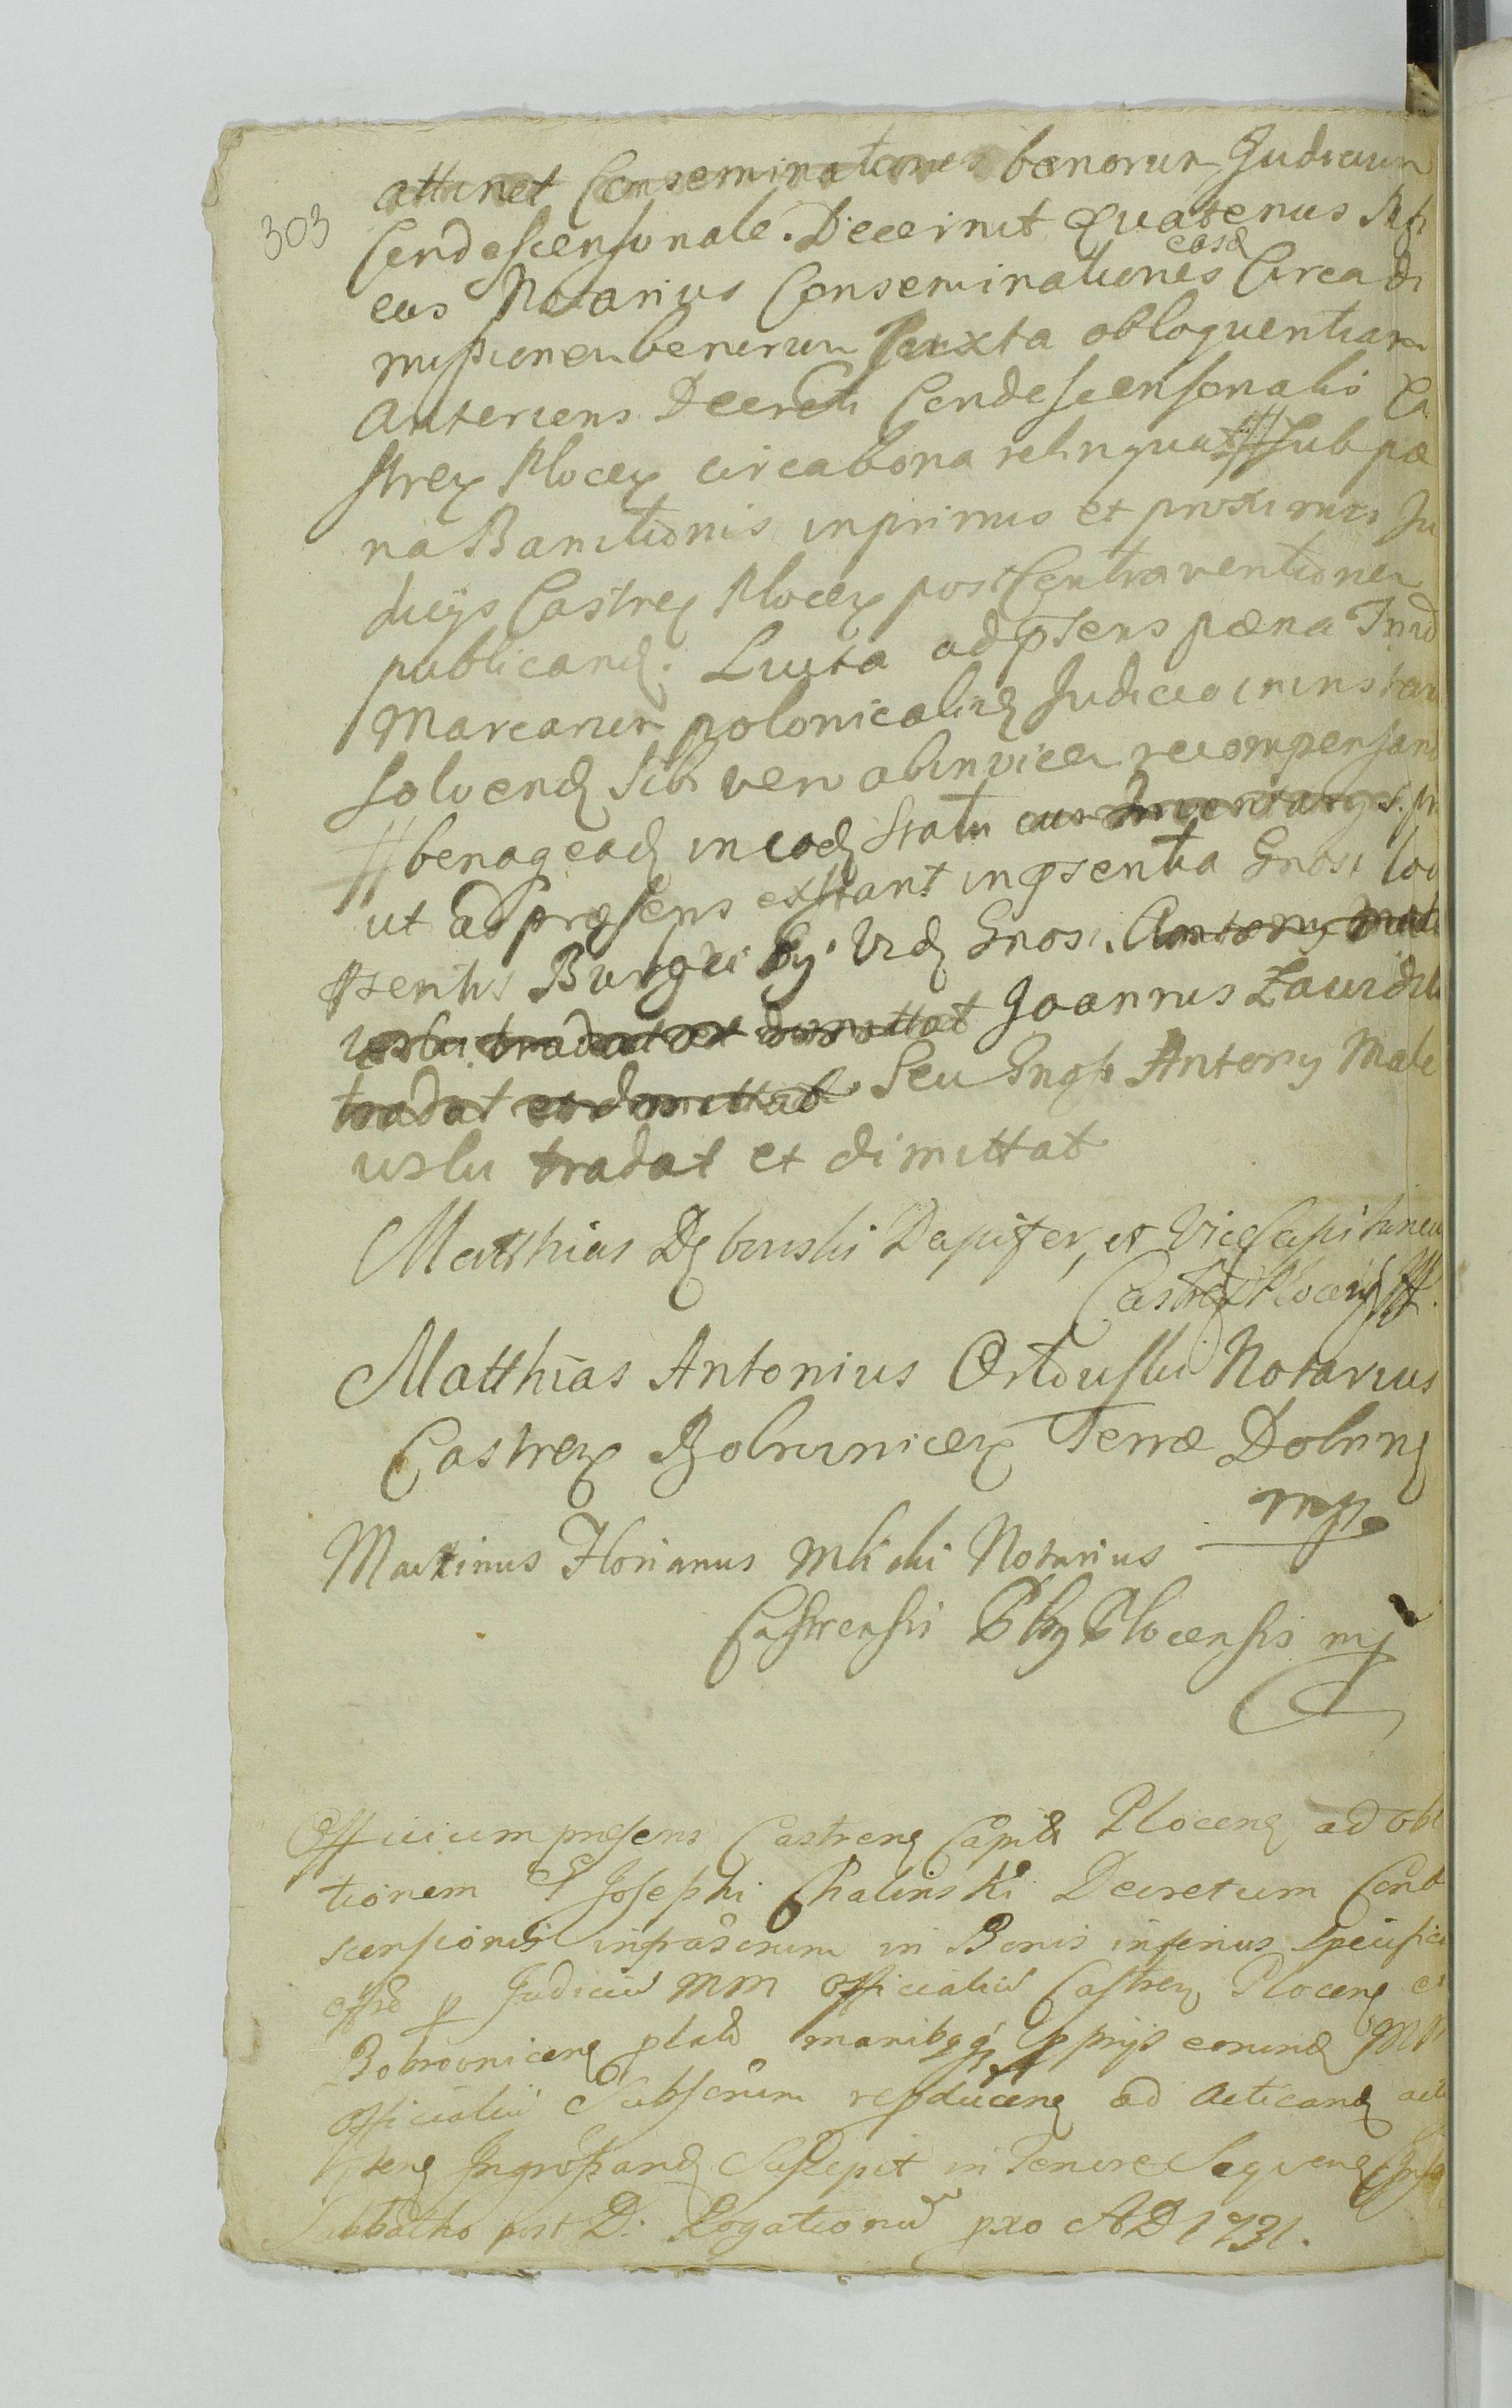 303
attinet Conseminationes bonorum Judicium
Condescensionale. Decernit Quatenus
easd
eos Notarius Conseminationes Circa di
missionem bonorum Juxta obloquentiam
Anteriens Decreti Condescensonalis Ca
stren Plocen circa bona relinquat # sub pœ
na Banitionis in primis et proximis Ju
dicijs Castren Plocen post Contraventionem
publicand. Luita ad pñtens pœna Trium
Marcarum polonicaliu Judicio in instanti
solvend sibi vero ab invicem recompensand
# bonaq eand in eod statu
ut ad præsens exstant in pñsentia Gnosi
Burgri Gnosi. Antony
tradat et dimittat Joannis Zawidzki
tradat et dimittat Seu Gnosi Antony Male
wski tradat et dimittat
Matthias Dębowski Dapifer, et Vicecapitaneus
Castren Plocen
Matthias Antonius Orłowski Notarius
Castren Bobrownicen Terræ Dobrin
mp
Martinus Florianus Mlicki Notarius
Castrensis Plocensis mp
Officium præsens Castren Capit Plocen ad obla
tionem G Josephi Chalinski Decretum Conde
scensionis infrascrium in Bonis inferius specifica
p Judiciū MM Officialiū Castren Plocen et
Bobrownicen manibqq pprijs eorund MM
Officialiū Subscrium repducens ad Acticand
Ingrossand Suscepit in Tenore Sequens
Sabbatho post D: Rogationū pxo AD 1731.